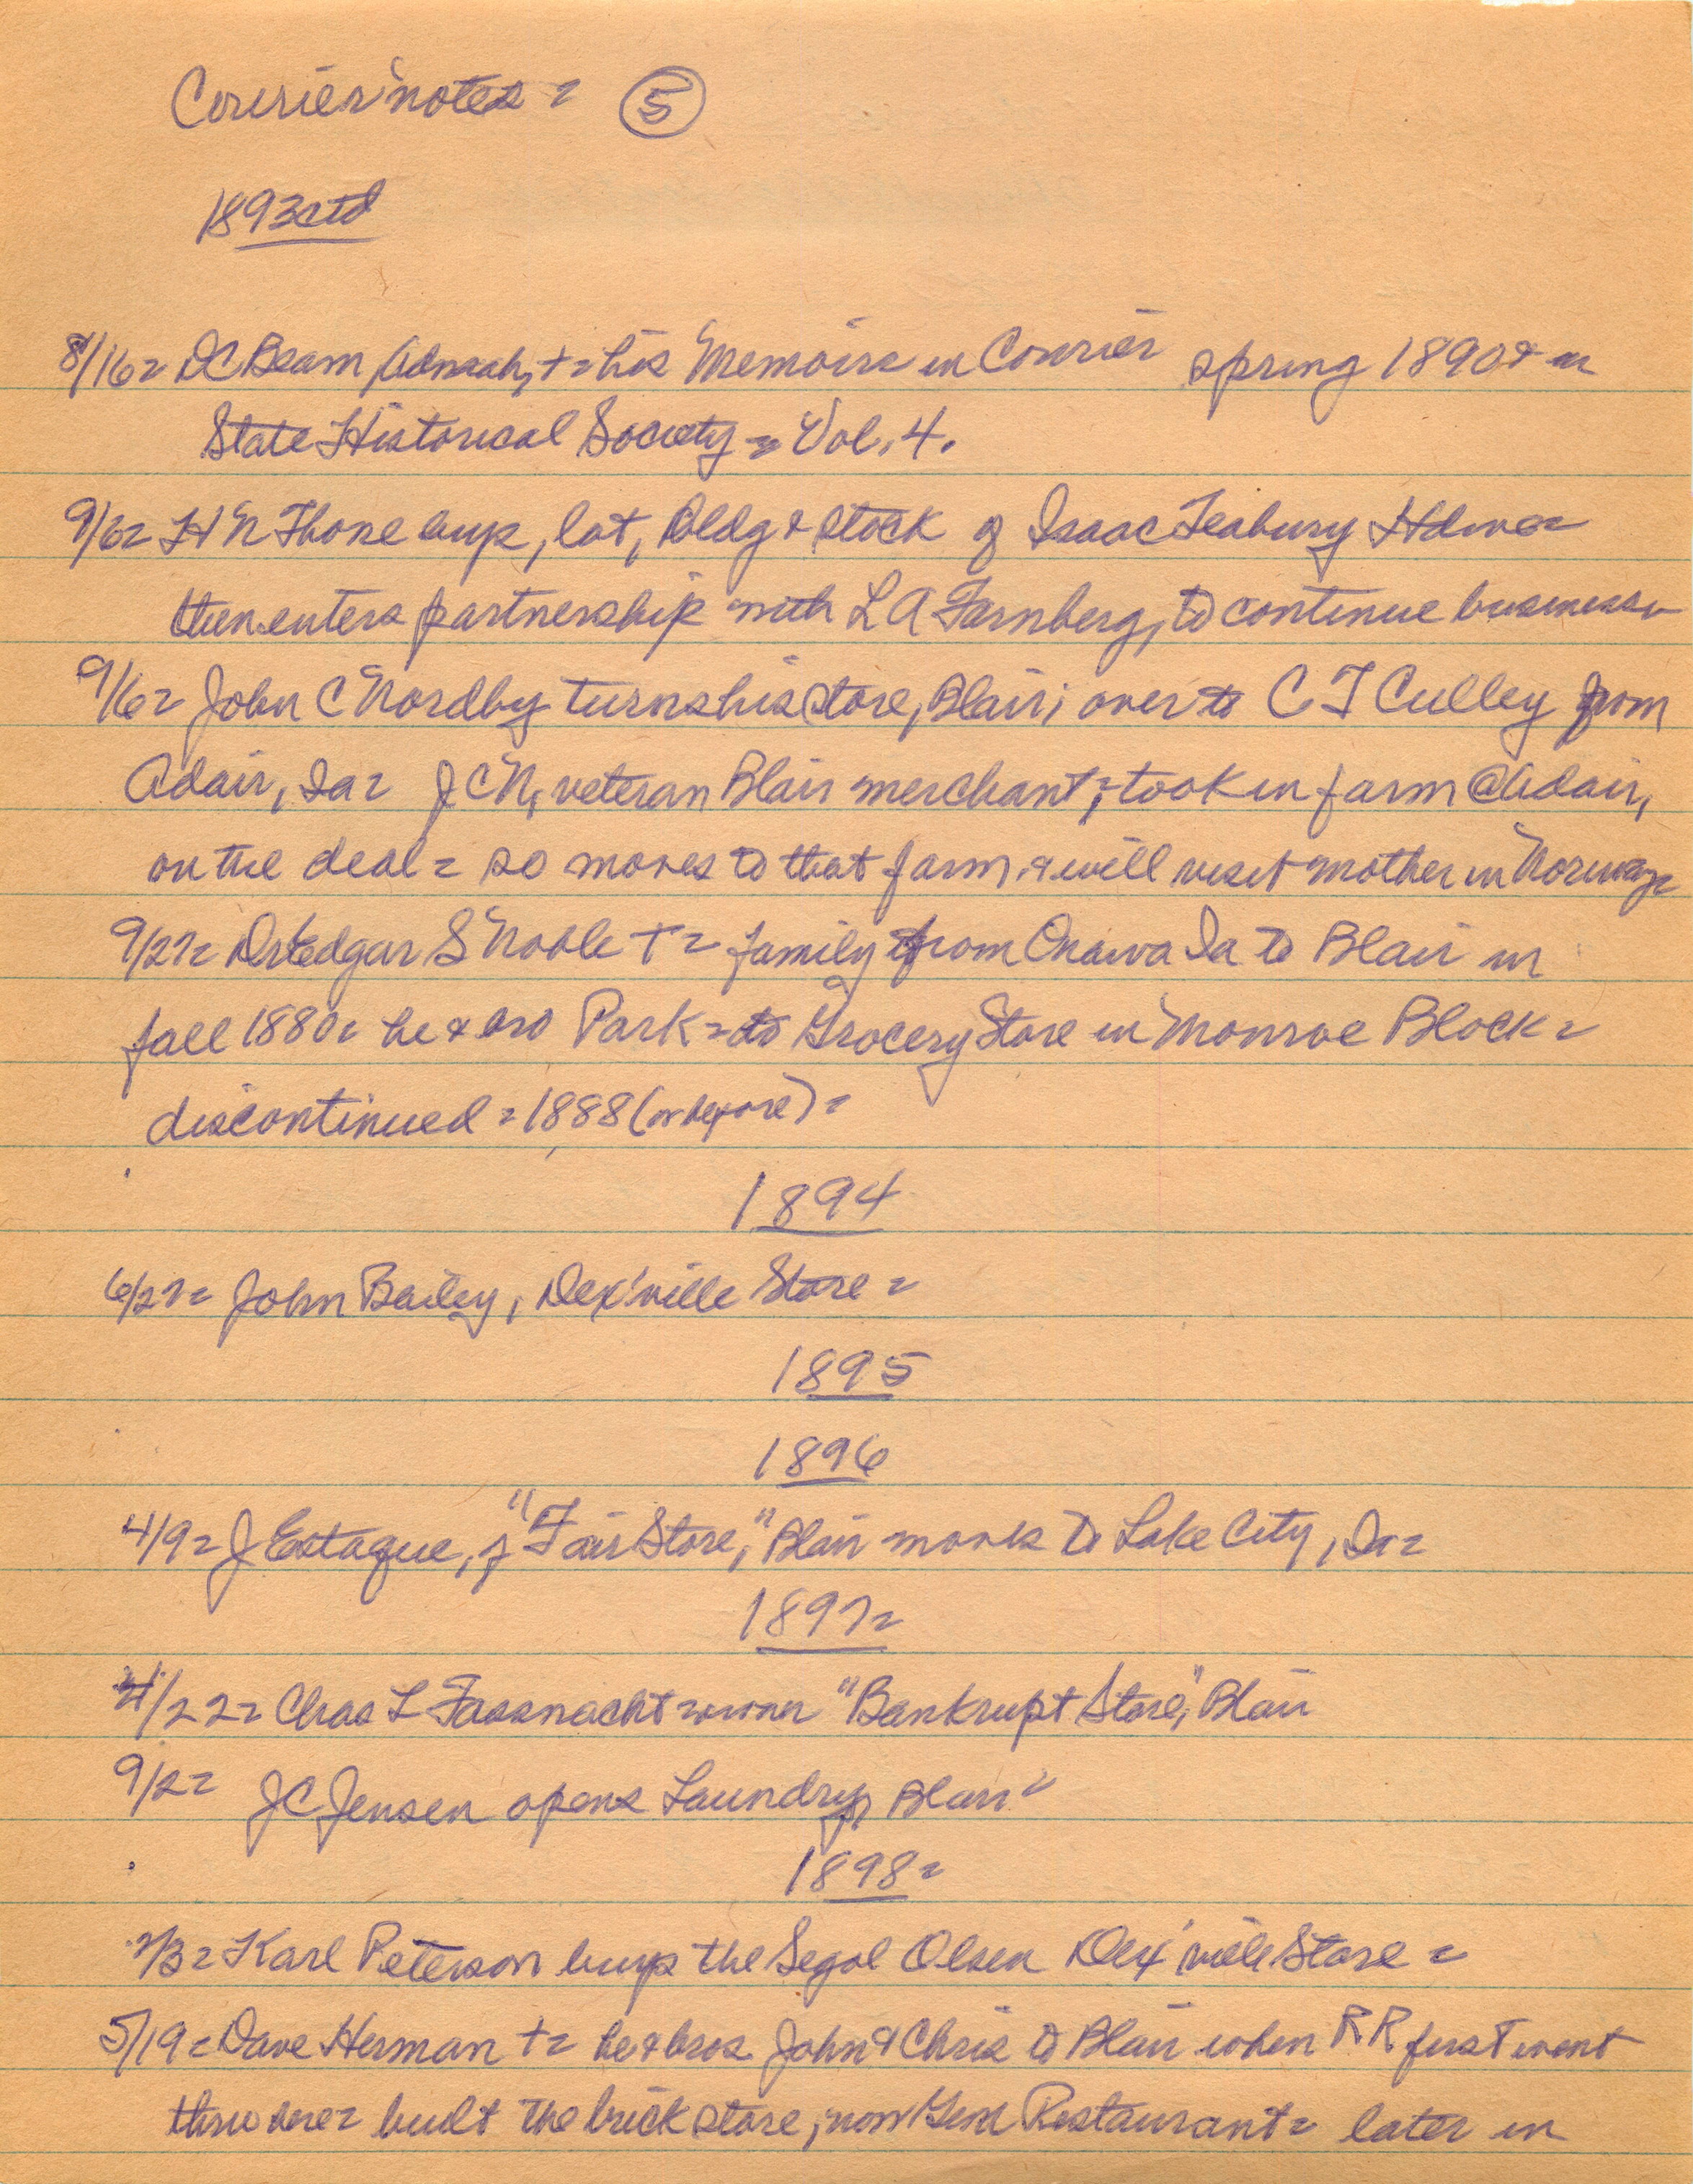 Courier notes = 5
1893 ctd
8/16 = DC Beam, += his Memoirs in Courier spring 1890 & in
State Historical Society = Vol. 4.
9/6 = H N Thone buys, lot, bldg & stock of Isaac Hdwe =
then enters partnership with L A Farnberg, to continue business =
9/6 = John C Nordby turns his store, Blair, over to C T Culley from
Adair, Ia = J C N, veteran Blair merchant, = took in farm @ Adair,
on the deal = so moves to that farm & will visit mother in Norway =
9/27 = Dr Edgar S Noble + = family from Onawa Ia to Blair in
fall 1880 = he & bro Park = Grocery Store in Monroe Block =
discontinued = 1888 (or before) =
1894
6/27 = John Bailey, Dex'ville Store =
1895
1896
4/9 = J Estaque, of "Fair Store," Blair moves to Lake City, Ia =
1897 =
4/22 = Chas L Fassnacht = owner "Bankrupt Store," Blair
9/2 = J C Jensen opens Laundry, Blair =
1898 =
2/3 = Karl Peterson buys the Segol Olsen Dex'ville Store =
5/19 = Dave Herman + = he & bros John & Chris to Blair when RR first went
thru here = built the brick store, now Gem Restaurant = later in